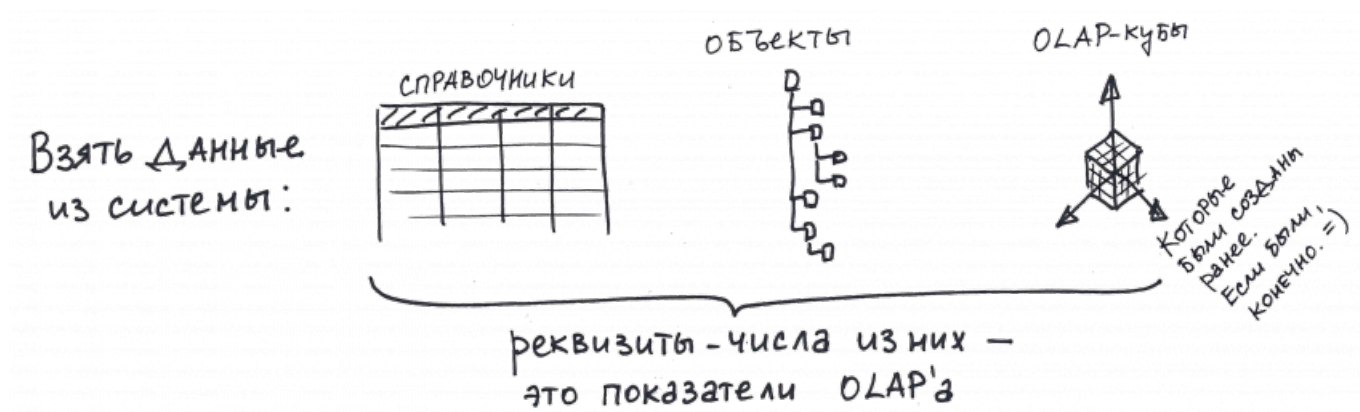 Взять данные
из системы:
СПРАВОЧНИКИ
ОБЪЕКТЫ
OLAP-кубы
Которые
были созданы
ранее.
Если были,
конечно. =)
реквизиты - числа из них —
это показатели OLAP'a